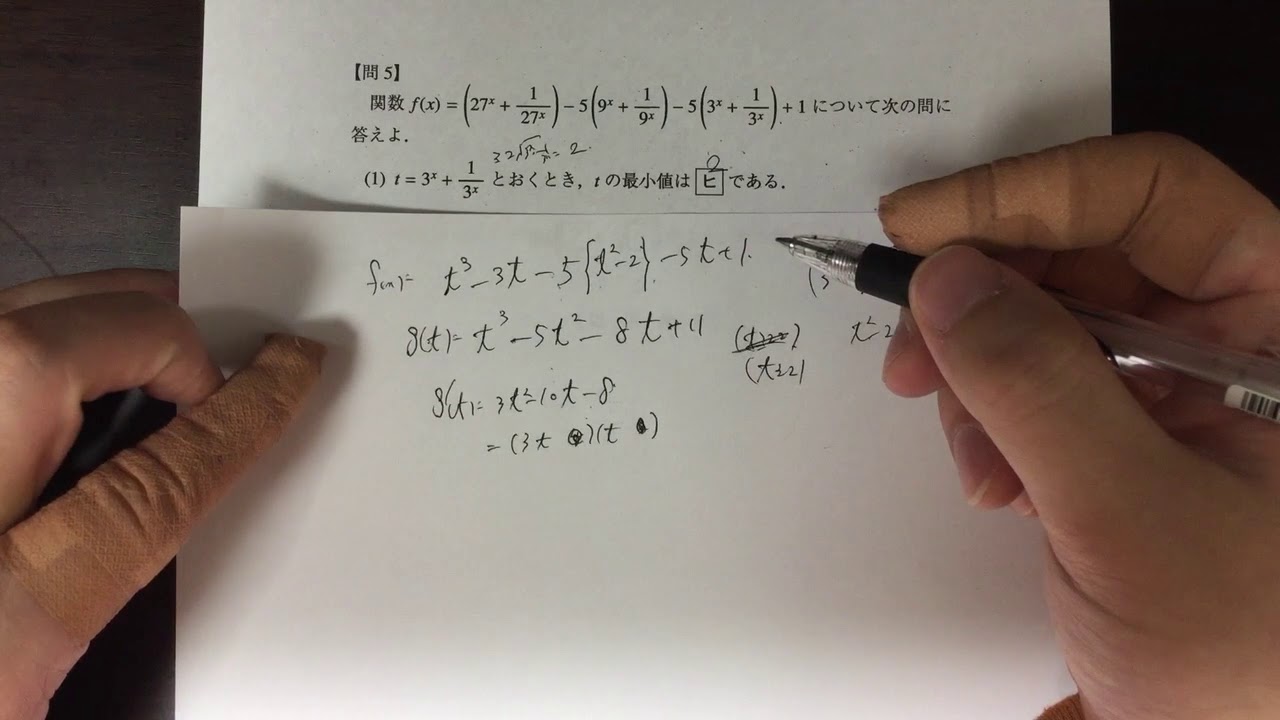 【問 5】
関数 f(x) = (27ˣ + 1/27ˣ) − 5(9ˣ + 1/9ˣ) − 5(3ˣ + 1/3ˣ) + 1 について次の問に
答えよ.
= 2.
2
(1) t = 3ˣ + 1/3ˣ とおくとき, t の最小値は ヒ である.
f(x) = t³ − 3t − 5{t² − 2} − 5t + 1.
g(t) = t³ − 5t² − 8t + 11
(t ≧ 2)
t² − 2
g'(t) = 3t² − 10t − 8
= (3t )(t )